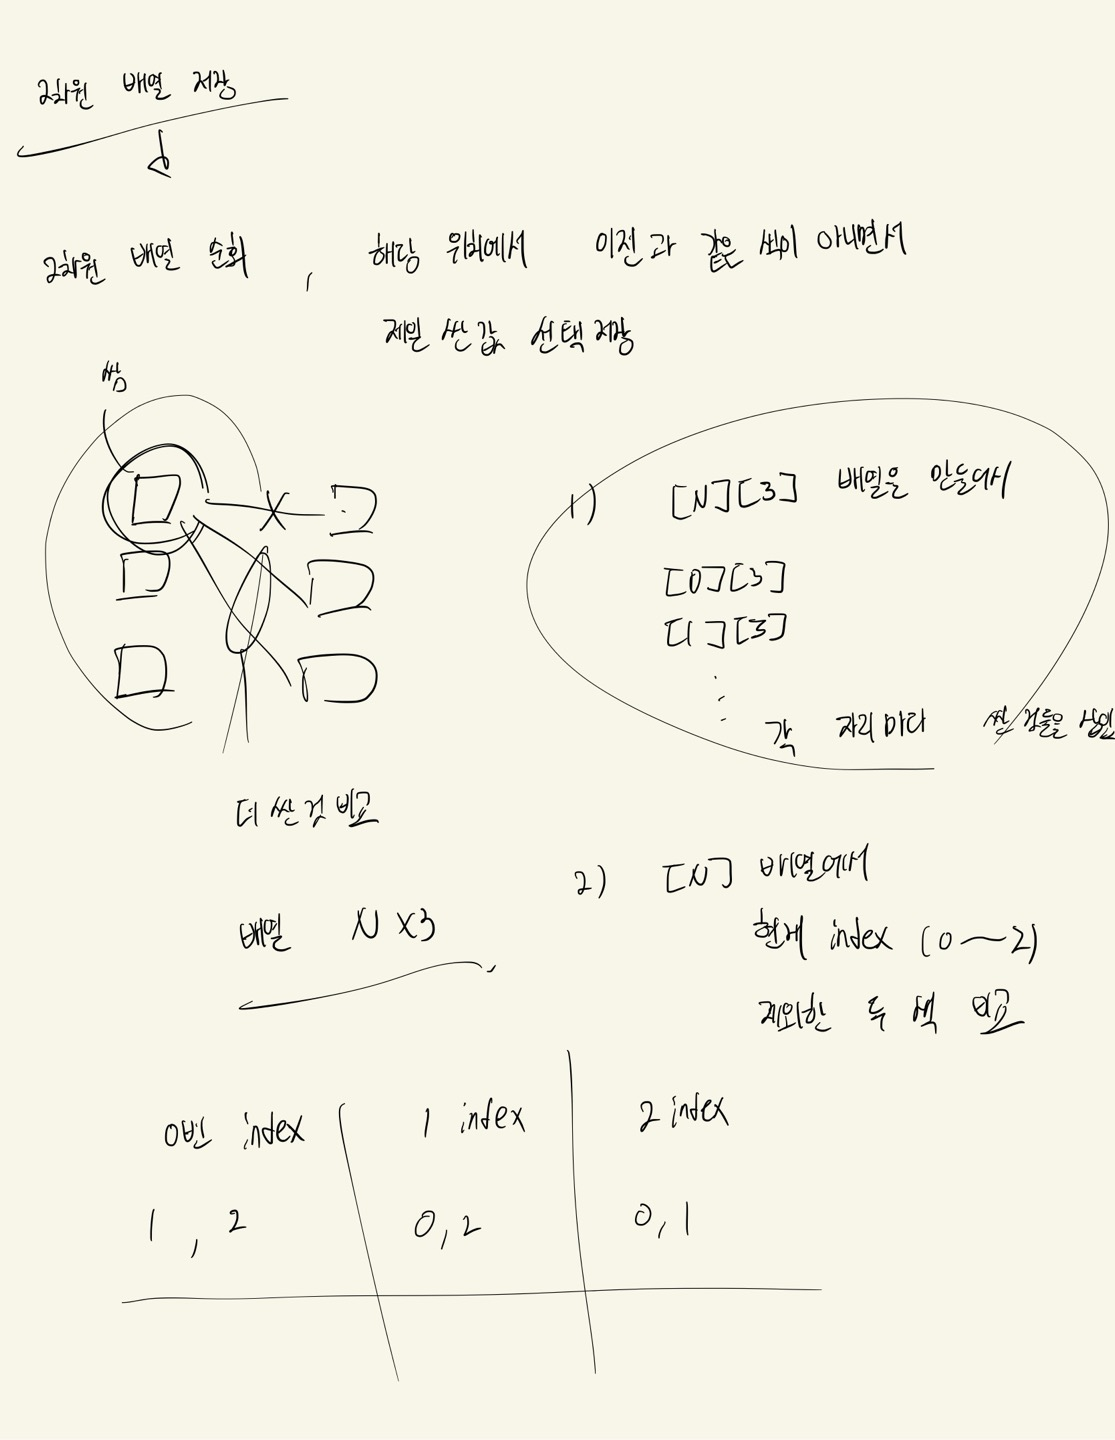 2차원 배열 저장
2차원 배열 순회, 해당 위치에서 이전과 같은 색이 아니면서
제일 싼 값 선택 저장
쌈
1) [N][3] 배열을 만들어서
[0][3]
[1][3]
각 자리마다 싼 것들을 삽입
더 싼 것 비교
배열 N×3
2) [N] 배열에서
현재 index (0~2)
제외한 두 색 비교
0번 index 1 index 2 index
1, 2 0, 2 0, 1